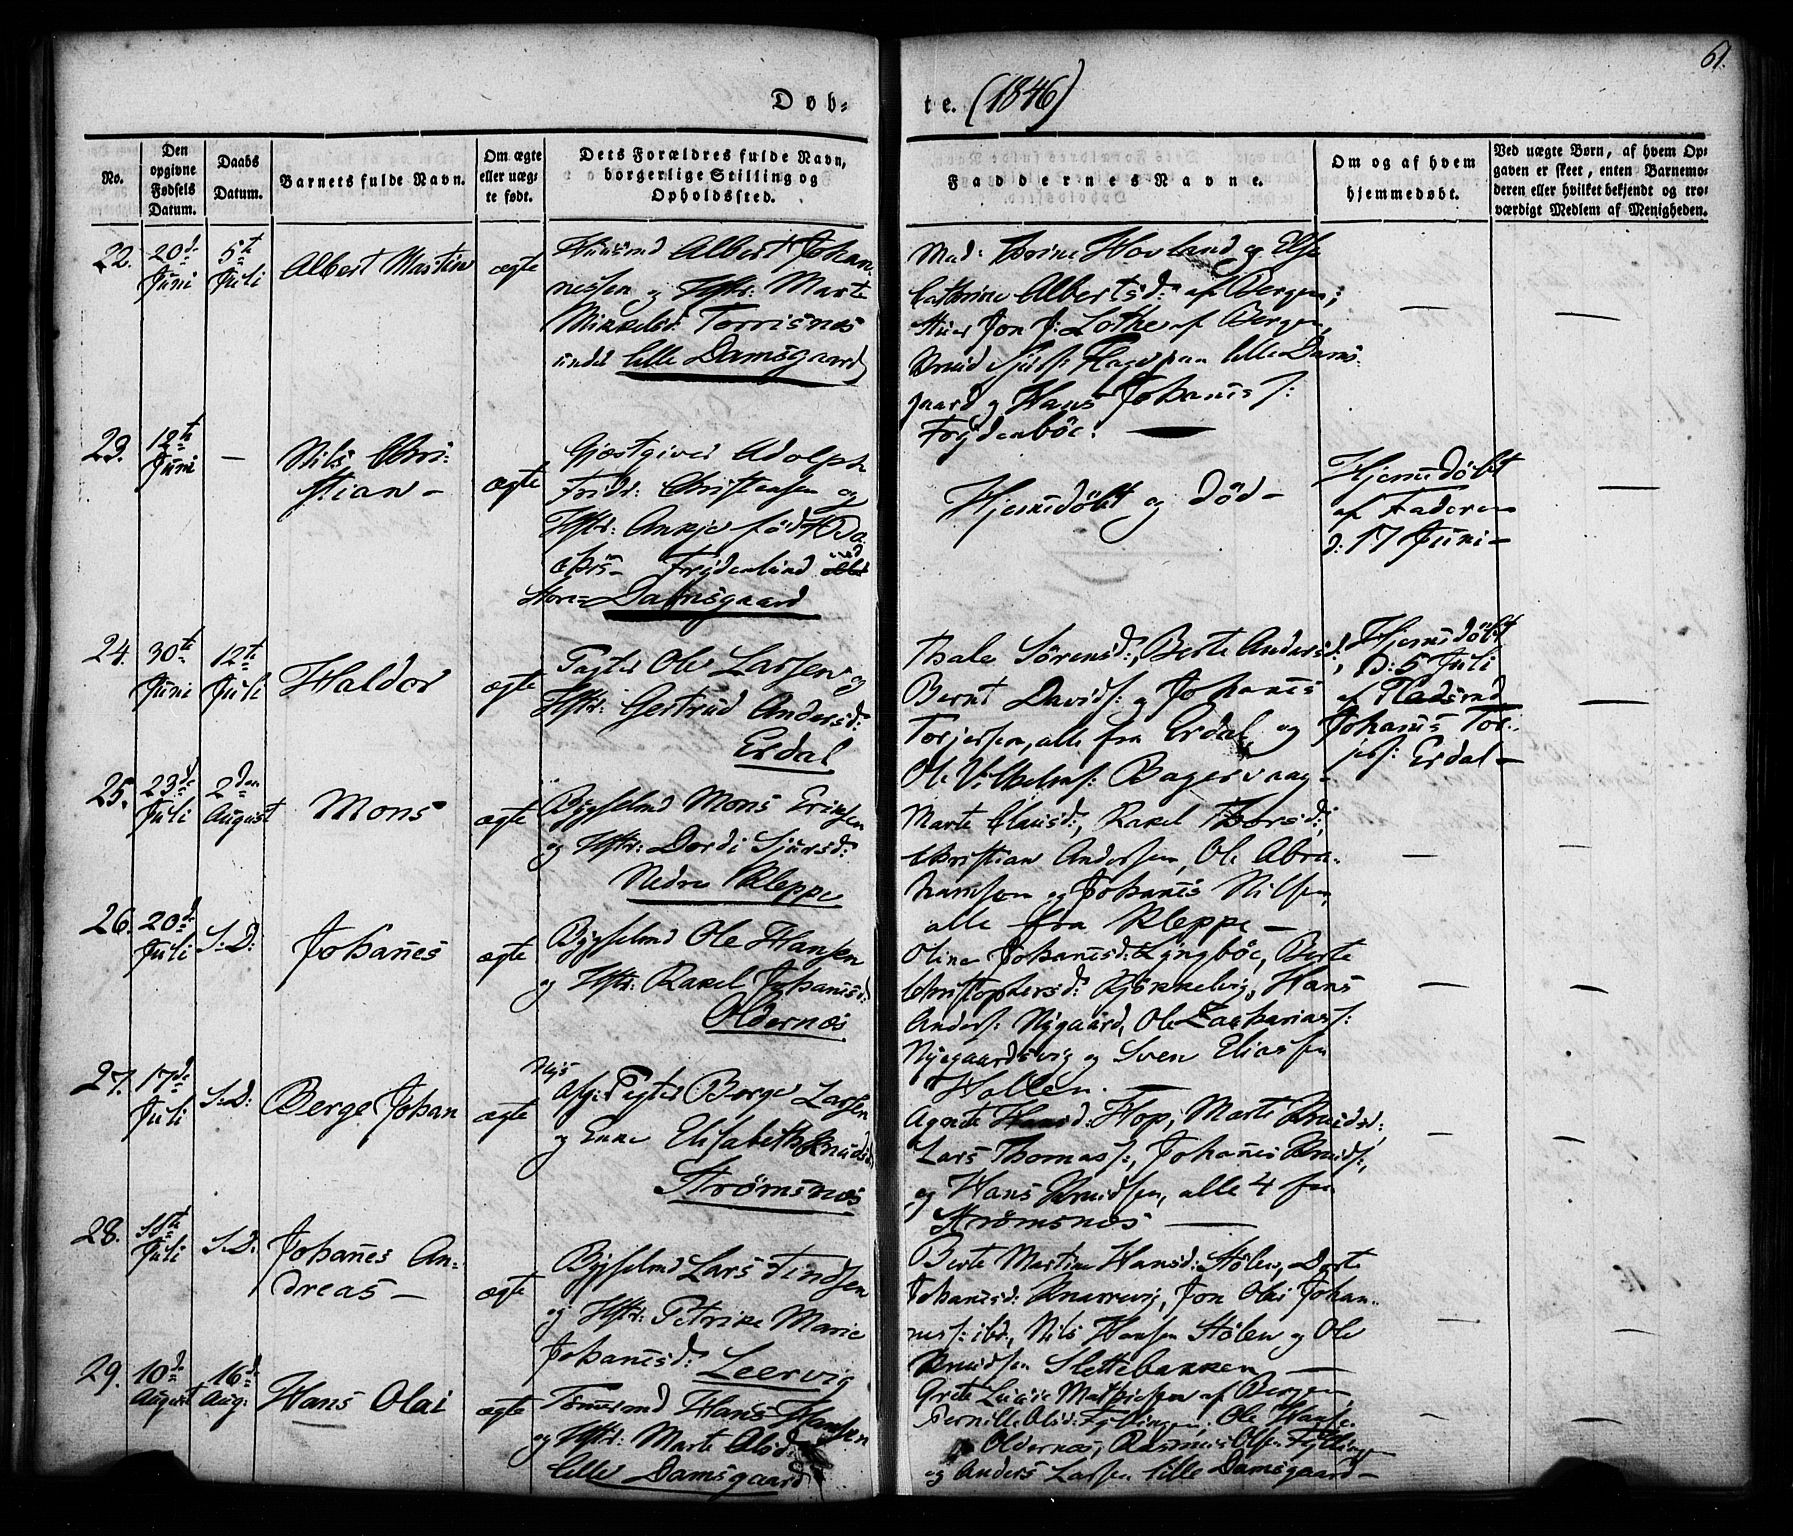 61.
Døb-
te. (1846)
No.
Den opgivne Fødsels Datum.
Daabs Datum.
Barnets fulde Navn.
Om ægte eller uægte født.
Dets Forældres fulde Navn, borgerlige Stilling og Opholdssted.
Faddernes Navne.
Om og af hvem hjemmedøbt.
Ved uægte Børn, af hvem Opgaven er skeet, enten Barnemoderen eller hvilket bekjendt og troværdigt Medlem af Menigheden.
22.
20de Juni
5te Juli
Albert Martin
ægte
Huusmd Albert Johan-
nessen og Hstr: Marte
Mikkelsd: Torrisnæs
under lille Damsgaard
Mad: Thrine Hovland og Else
Cathrine Albertsd: af Bergen;
Jon J: Lothe af Bergen,
Knud Sjurs: Hage paa lille Dams-
gaard og Hans Johannes:
Frydenbøe. —
—
—
23.
12te Juni
—
Nils Chri-
stian —
ægte
Gjæstgiver Adolph
Fridr: Christensen og
Hstr: Ankje født
Frydenlund ved
Store- Damsgaard
Hjemmedøbt og død —
Hjemmedøbt
af Faderen
d: 17 Juni —
—
24.
30te Juni
12te Juli
Haldor
ægte
Pagter Ole Larsen og
Hstr: Gertrud Andersd:
Erdal
Thale Sörensd:, Berte Andersd:,
Bernt Davids: og Johannes
Torjersen, alle fra Erdal, og
Ole Vilhelms: Bagervaag —
Hjemmedøbt
d: 5 Juli
af Pladsmd
Johannes Tor-
jers: Erdal —
—
25.
23de Juli
2den August
Mons
ægte
Bygselmd Mons Eriksen
og Hstr: Dordi Sjursd:
Nedre Kleppe
Marte Clausd:, Rakel Thorsd:,
Christian Andersen, Ole Abra-
hamsen og Johannes Nilsen,
alle fra Kleppe —
—
—
26.
20de Juli
S: D:
Johannes
ægte
Bygselmd Ole Hansen
og Hstr: Rakel Johannesd:
Oldernæs
Oline Johannesd: Lyngbøe, Berte
Christophersd: Kjøkkelvig, Hans
Anders: Nygaard, Ole Zacharias:
Nyegaardsvig og Sven Eliassen
Hollen. —
—
—
27.
17de Juli
S: D:
Berge Johan
ægte
Pagter Berge Larsen
og Enke Elisabeth Knudsd:
Strømsnæs
Agnete Hansd: Hop, Marte Knudsd:,
Lars Thomas:, Johannes Knuds:,
og Hans Knudsen, alle 4 fra
Strømsnæs —
—
—
28.
Juli
S: D:
Johannes An-
dreas —
ægte
Bygselmd Lars Findsen
og Hstr: Petrike Marie
Johannesd: Leervig
Berte Martine Hansd: Stølen, Dorte
Johannesd: Knarrevig, Jon Olai Johan-
nes: ibd., Nils Hansen Stølen og Ole
Knudsen Slettebakken —
—
—
29.
10de August
16de Aug:
Hans Olai
ægte
Tømmermd Hans Hansen
og Hstr: Marte Olsd:
lille Damsgaard
Grete Lucie Mathiesen af Bergen,
Pernille Olsd: Fyllingen, Ole Hans:
Oldernæs, Rasmus Olsen Fyllingen
og Anders Larsen lille Damsgaard —
—
—